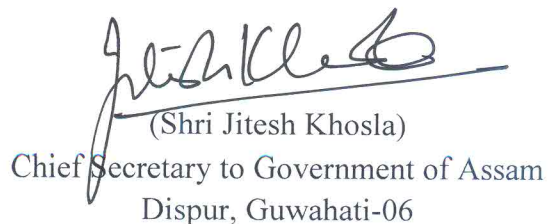 Jitesh Khosla
(Shri Jitesh Khosla)
Chief Secretary to Government of Assam
Dispur, Guwahati-06